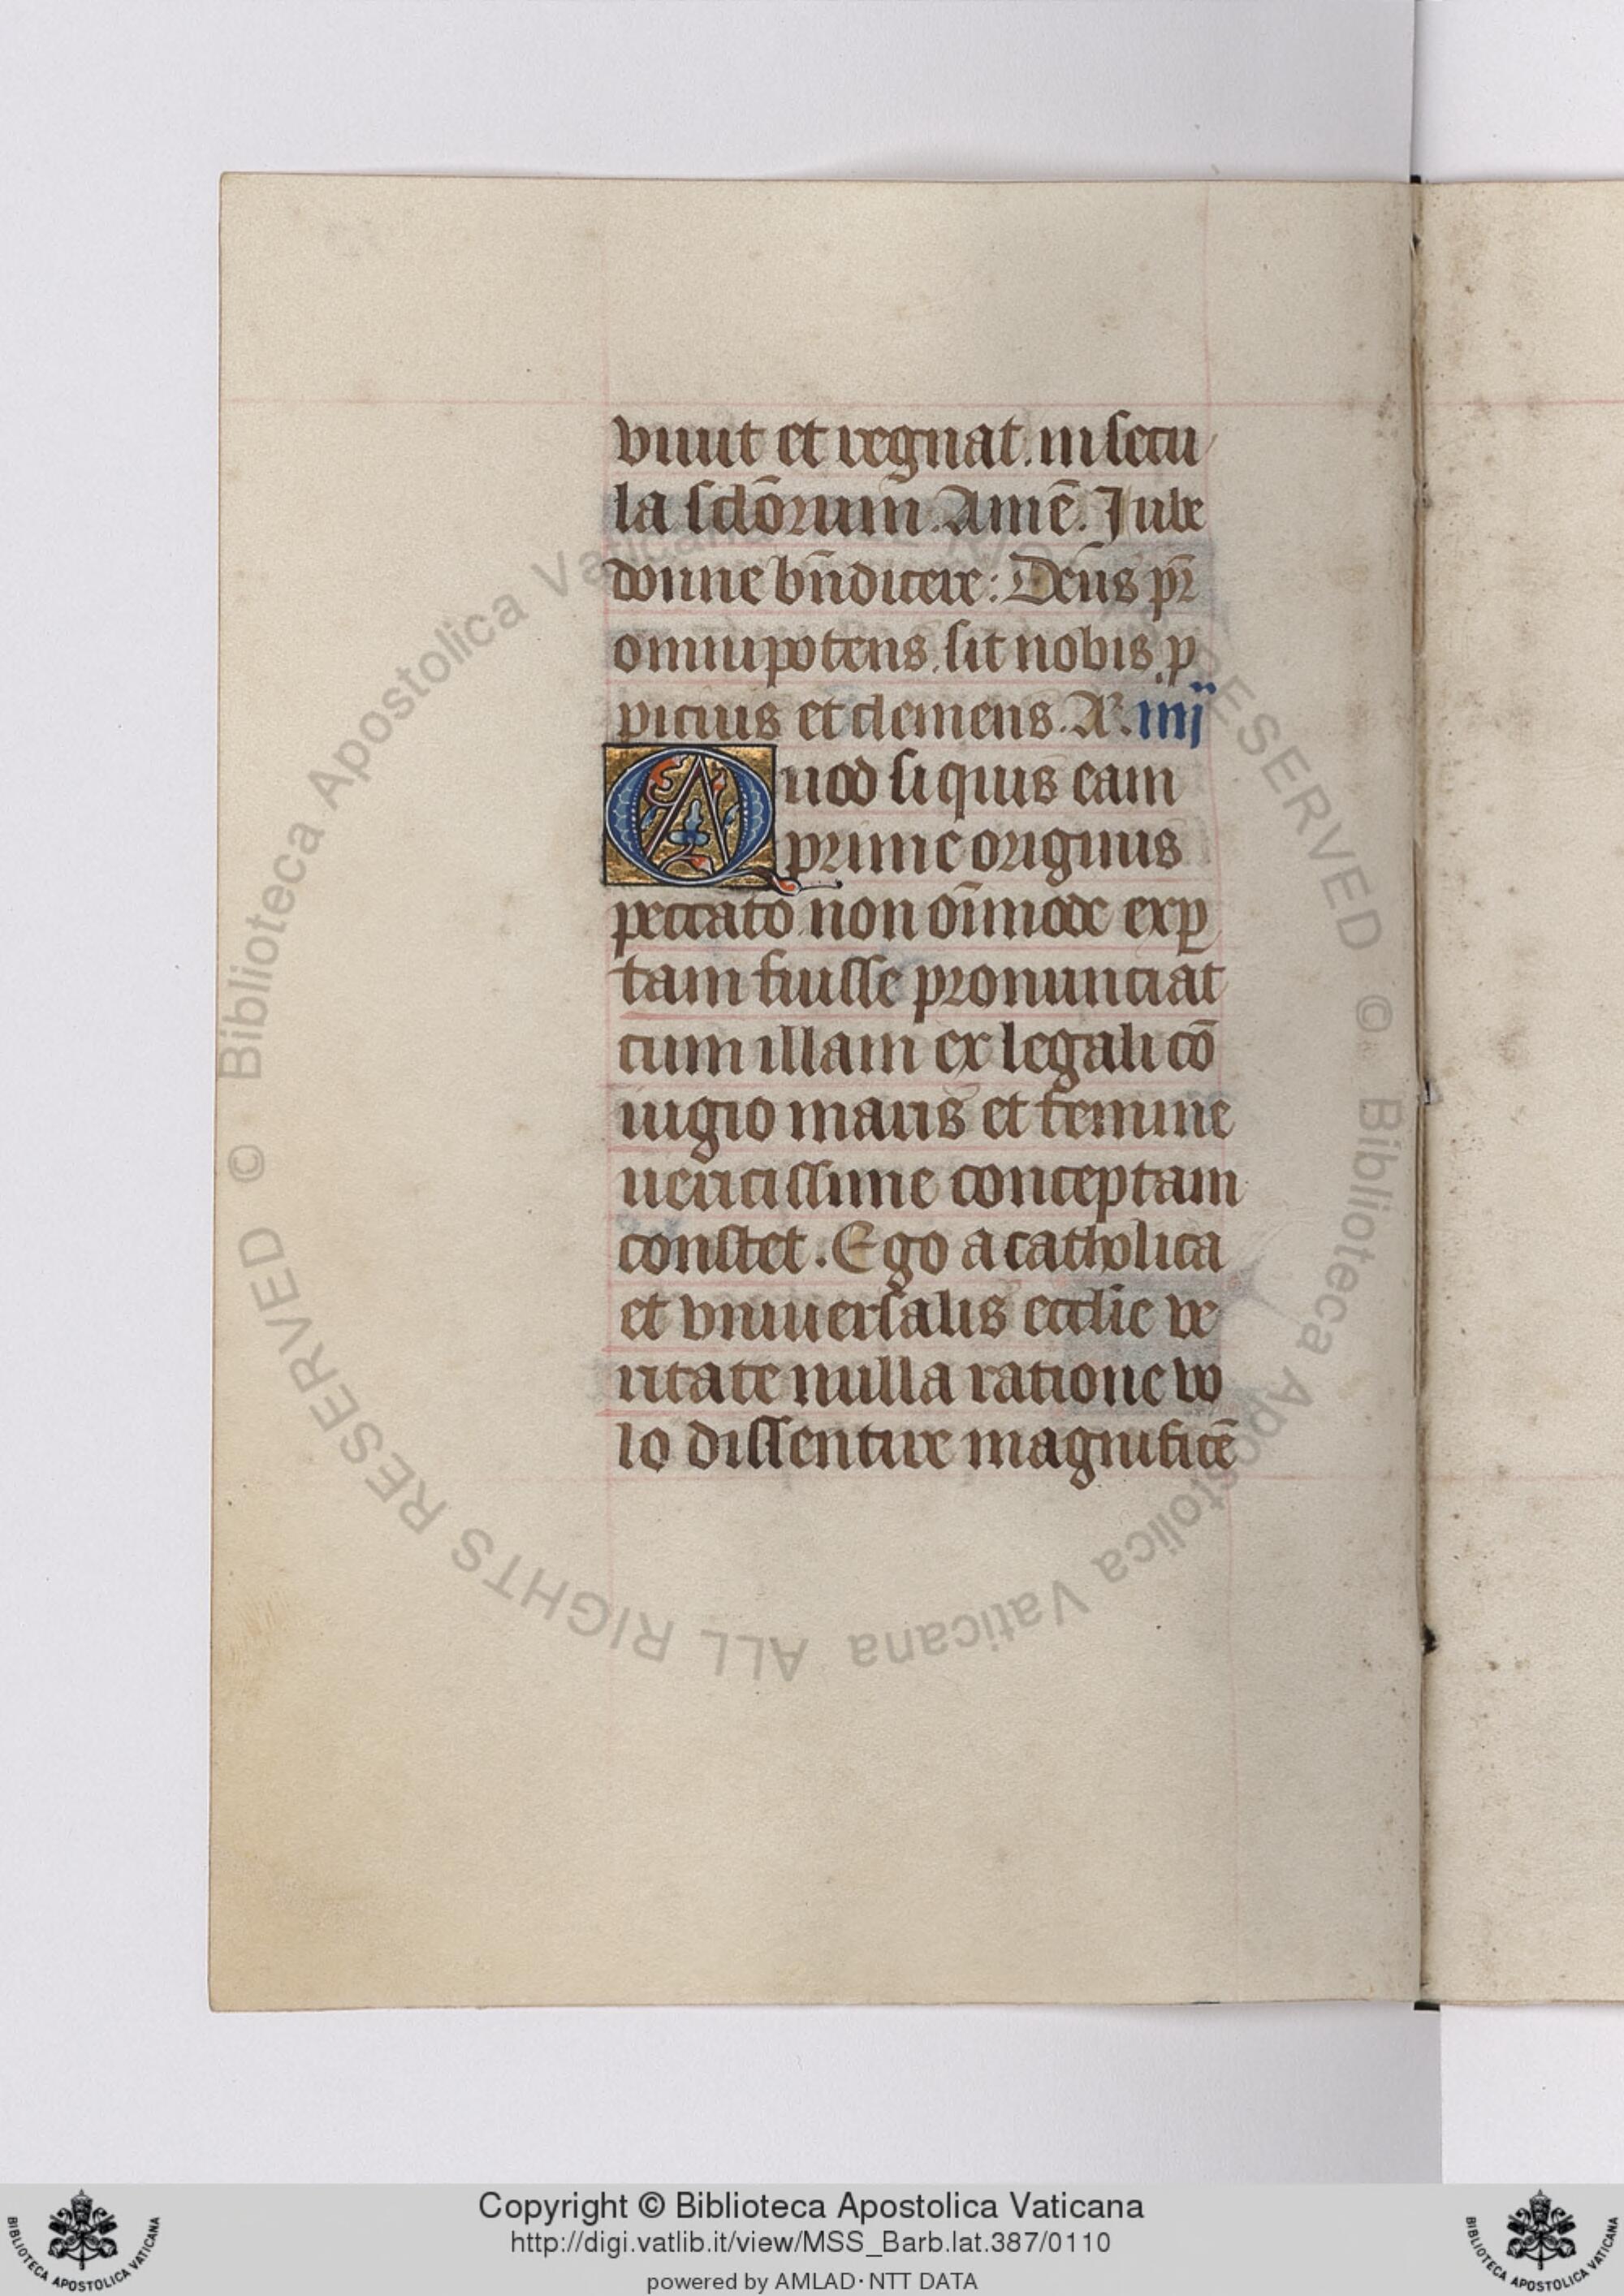 viuit et regnat. in secu
la sclōrum̄. Amē. Iube
domne bn̄dicere: Deus pr̄
omnipotens. sit nobis. p
picius et clemens. A. iiij
Quod si quis eam
prime originis
peccato non oīmode exp
tam fuisse pronunciat
cum illam ex legali cō
iugio maris et femine
uericissime conceptam
constet. Ego a catholica
et vniuersalis ecclie ve
ritate nulla ratione vo
lo dissentire magnificē
© Biblioteca Apostolica Vaticana ALL RIGHTS RESERVED
© Biblioteca Apostolica Vaticana ALL RIGHTS RESERVED
Copyright © Biblioteca Apostolica Vaticana
http://digi.vatlib.it/view/MSS_Barb.lat.387/0110
powered by AMLAD·NTT DATA
BIBLIOTECA APOSTOLICA VATICANA
BIBLIOTECA APOSTOLICA VATICANA